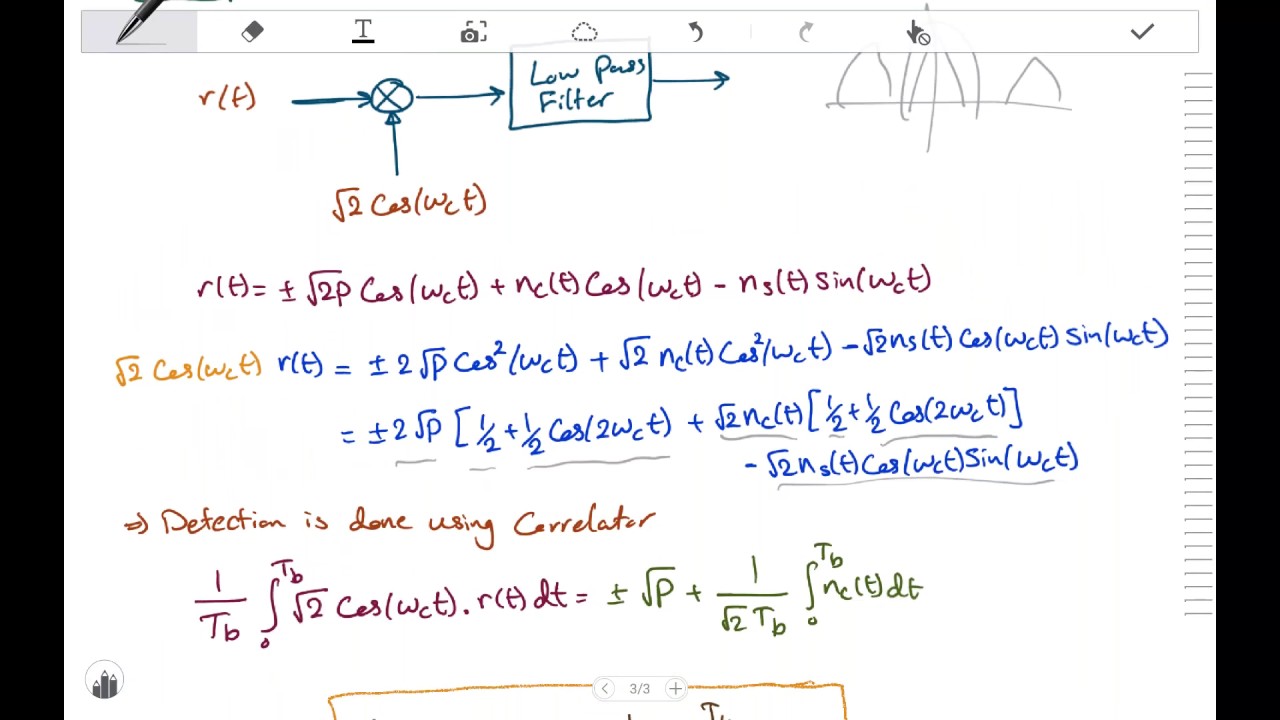 T
Low Pass
Filter
r(t)
√2 Cos(ωct)
r(t) = ± √2P Cos(ωct) + nc(t) Cos(ωct) - ns(t) Sin(ωct)
√2 Cos(ωct) r(t) = ± 2√P Cos²(ωct) + √2 nc(t) Cos²(ωct) - √2 ns(t) Cos(ωct) Sin(ωct)
= ± 2√P [1/2 + 1/2 Cos(2ωct) + √2 nc(t) [1/2 + 1/2 Cos(2ωct)]
- √2 ns(t) Cos(ωct) Sin(ωct)
⇒ Detection is done using Correlator
1/Tb ∫₀^Tb √2 Cos(ωct) . r(t) dt = ± √P + 1/(√2 Tb) ∫₀^Tb nc(t) dt
3/3